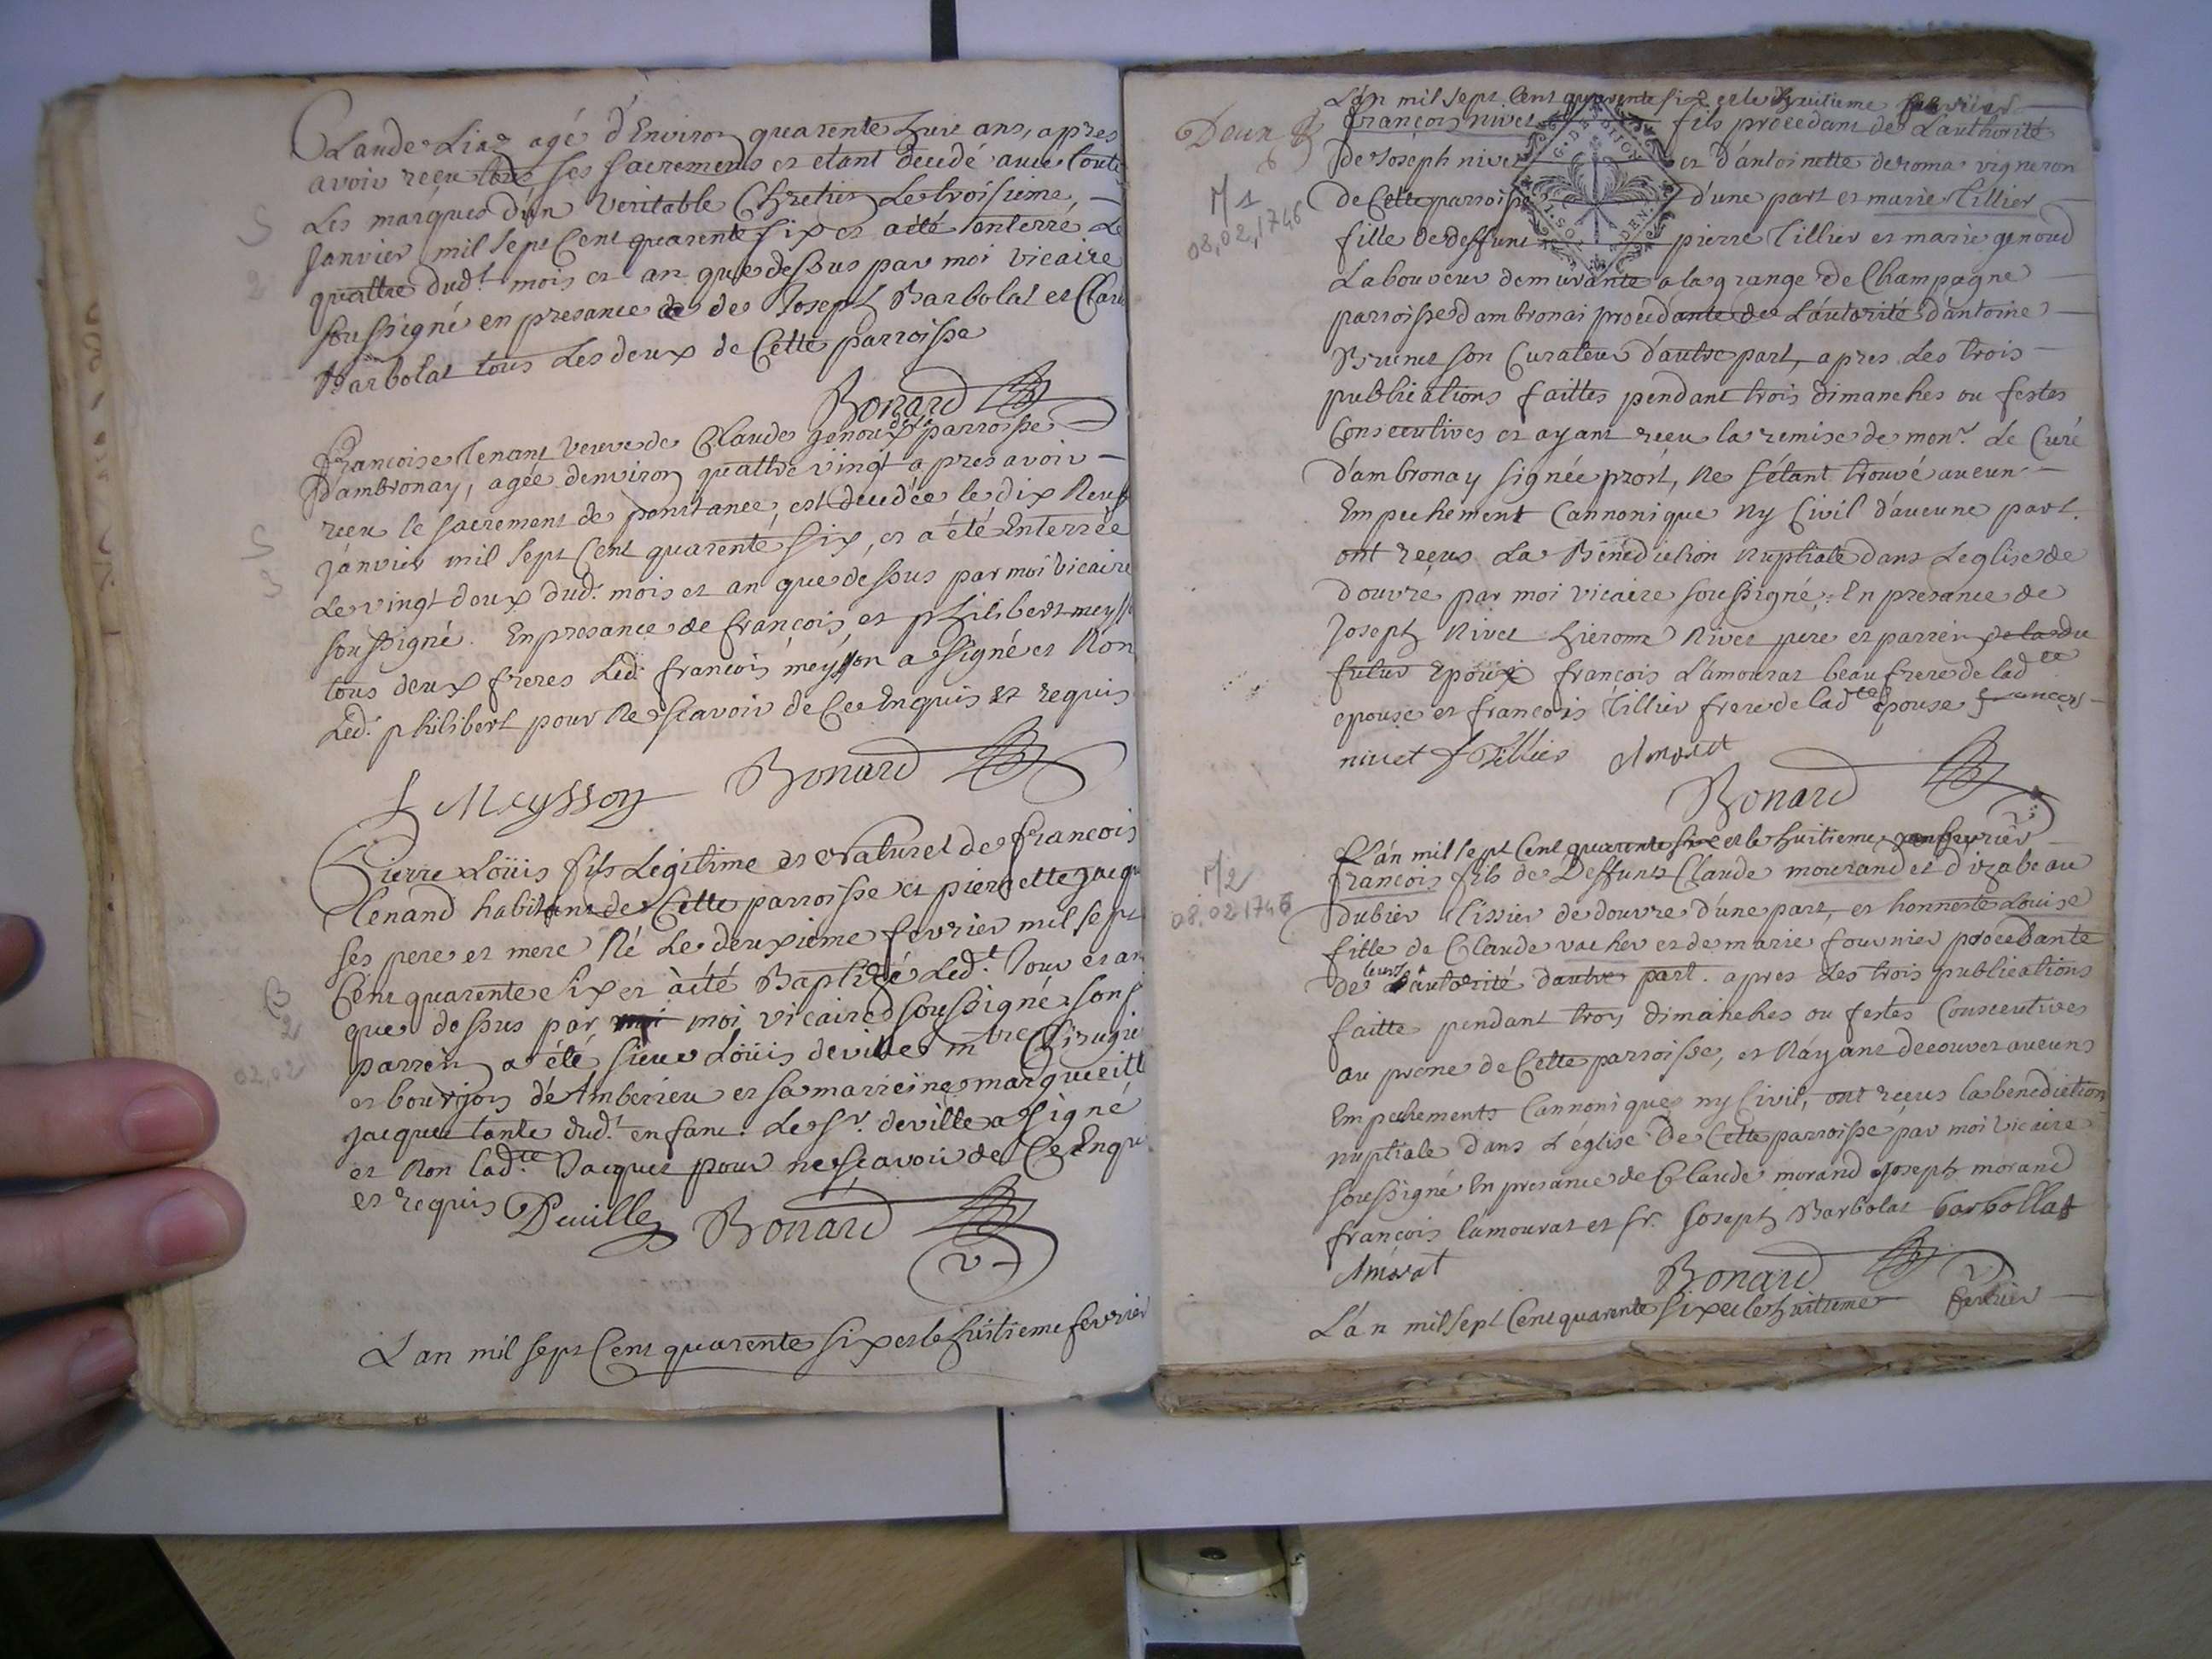 Claude Liaz agé d'Environ quarente huit ans, apres
avoir reçu tous ses sacrements et etant decedé avec toute
Les marques d'un veritable Chretien Le troisieme
janvier mil sept Cent quarente six et a été enterré Le
quattre dud.t mois et an que dessus par moi vicaire
soussigné en presance de Joseph Barbolat et Clau
Barbolat tous Les deux de Cette parroisse
Bonard
françoise Tenant veuve de Claude genoux parroisse
d'ambronay, agée denviron quattre vingt apres avoir
reçu le sacrement de penitance, est decedée le dix Neuf
janvier mil sept Cent quarente six, et a été Enterrée
Le vingt deux dud.t mois et an que dessus par moi vicaire
soussigné. En presance de françois et philibert meyss
tous deux freres Led. françois meysson a signé et Non
Led. philibert pour Ne scavoir de Ce Enquis et requis
f Meysson Bonard
Pierre Loüis fils Légitime et Naturel de francois
Tenand habitant de Cette parroisse et pierrette jacqu
ses pere et mere Né Le deuxieme fevrier mil sept
Cent quarente six et à été Baptizé Led.t Jour et an
que dessus par moi vicaire soussigné son
parrein a été sieur Loüis deville m.tre Chirugie
et bourjois d'Amberieu et sa marreine margueritt
jacquet tante dud.t enfant. Le s.r deville a signé
et Non lad.tte Jacquet pour ne scavoir de Ce Enqu
et requis Deville Bonard
L'an mil sept Cent quarente six et le huitieme fevrier
L'an mil sept Cent quarente six et le huitieme fevrier
françois nivet fils procedant de L'authorité
de Joseph nivet et d'antoinette deroma vigneron
de Cette parroisse d'une part et marie Tillier
M 1
08,02,1746
G. DE DIJON
fille de deffunt pierre Tillier et marie genoud
Laboureur demeurante a la grange de Champagne
parroisse d'ambronai proceddante de L'autorité d'antoine
Brunet son Curateur d'autre part, apres Les trois
publications faittes pendant trois dimanches ou festes
Consecutives et ayant reçu la remise de mon.r Le Curé
d'ambronay signée prost, Ne s'étant trouvé aucun
Empechement Cannonique Ny Civil d'aucune part.
ont reçus La Bénédiction Nuptiale dans L'eglise de
douvre par moi vicaire soussigné. En presance de
Joseph Nivet hierome Nivet pere et parrein
futur Epoux françois Lamourat beau frere de lad.te
epouse et françois Tillier frere de lad.te Epouse françois
nivet f Tillier Amorat
Bonard
L'an mil sept Cent quarente six et le huitieme fevrier
françois fils de Deffunt Claude mourand et d'izabeau
M 2
08,02 1746
dubier Tissier de douvre d'une part, et honneste Louise
fille de Claude vacher et de marie fournier procedante
de leurs autorité dautre part. apres Les trois publications
faitte pendant trois dimanches ou festes Consecutives
au prone de Cette parroisse, et N'ayant decouvert aucuns
Empechements Cannoniques ny Civil, ont reçus la benediction
nuptiale dans L'église De Cette parroisse par moi vicaire
soussigné En presance de Claude morand Joseph morand
françois lamourat et fr. Joseph Barbolat barbollat
Amorat
Bonard
L'an mil sept Cent quarente six et le huitieme fevrier